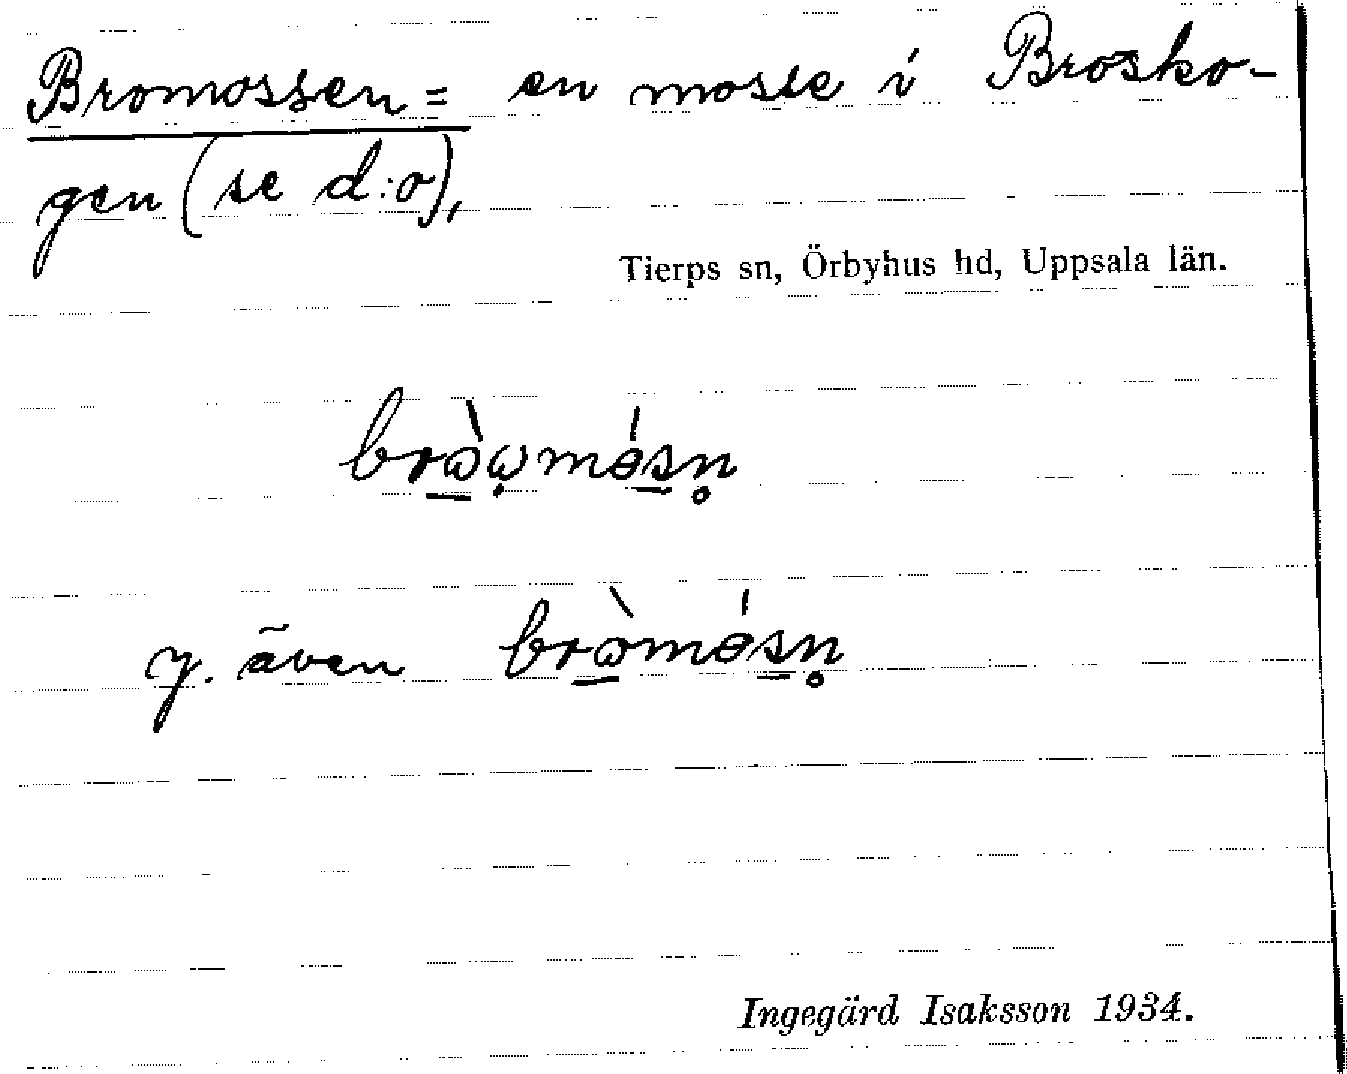 Bromossen = en mosse i Brosko-
gen (se d:o),
Tierps sn, Örbyhus hd, Uppsala län.
y. även
Ingegärd Isaksson 1934.